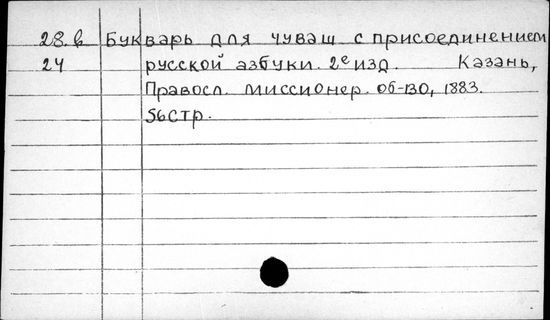 28.в Букварь для чуваш с присоединением
24 русской азбуки. 2е изд. Казань,
Правосл. миссионер. об-во, 1883.
56стр.